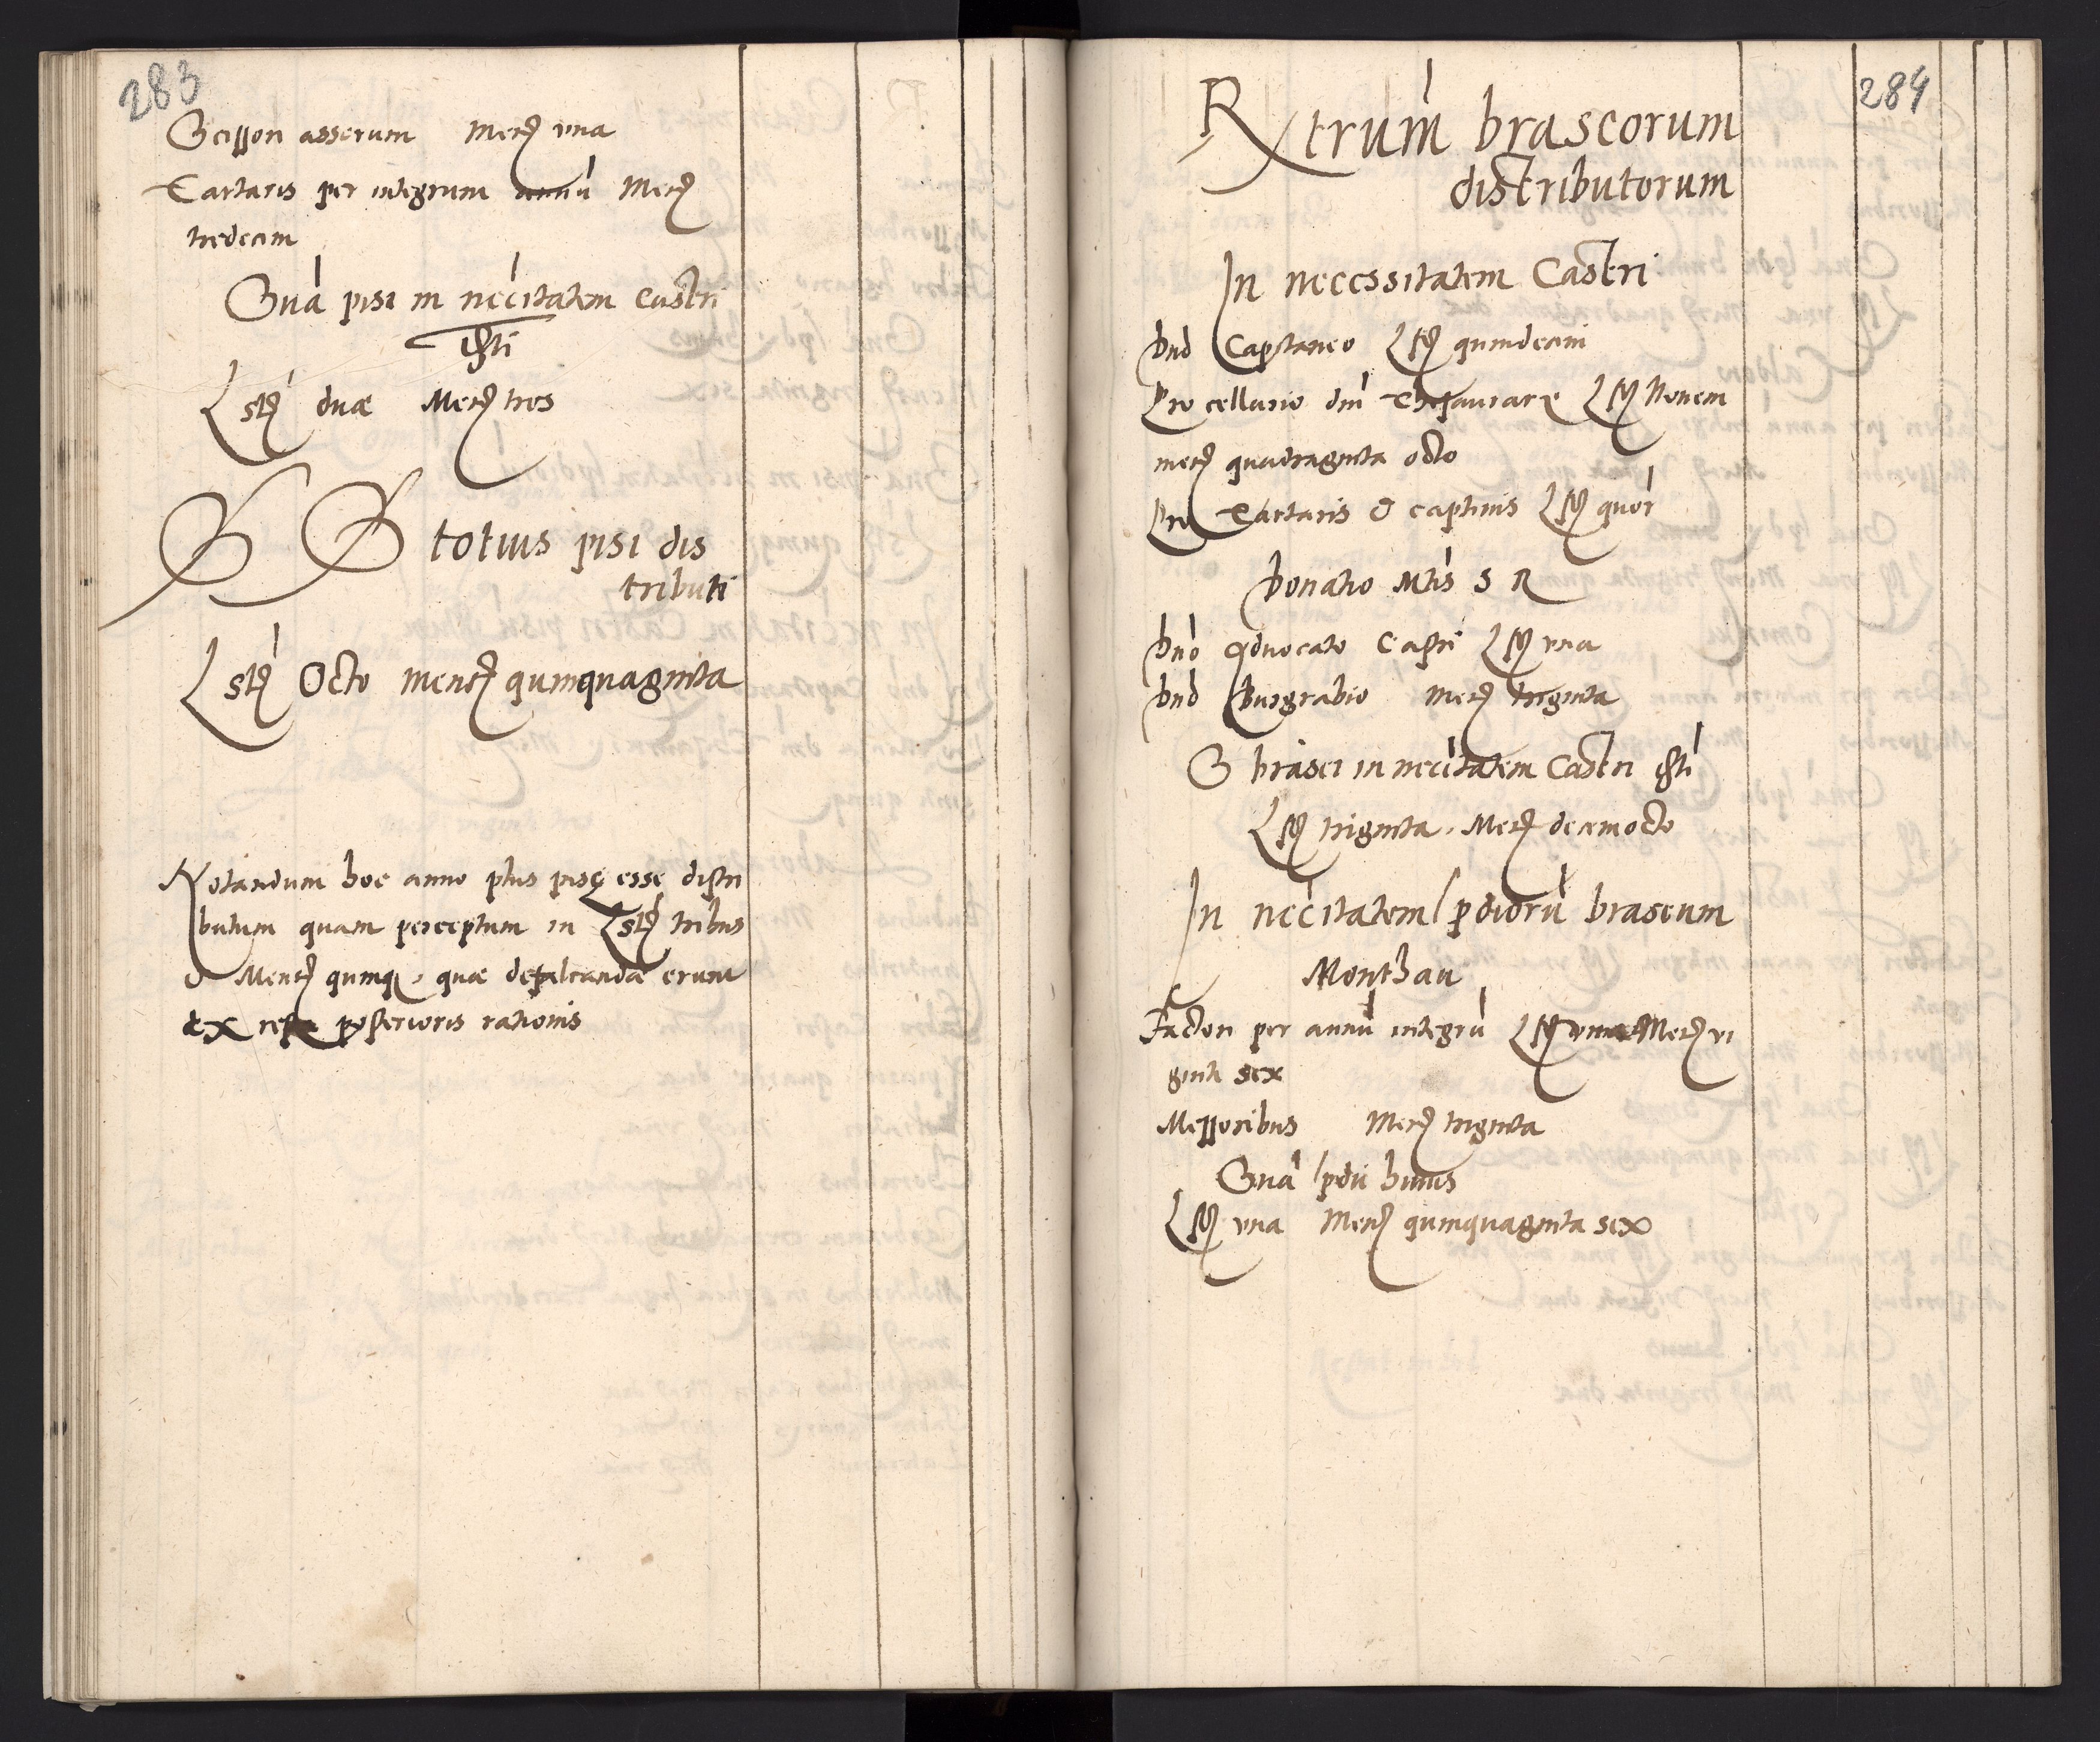 283
Scissori asserum Mens una
Tartaris per integrum annū Mens
tredecim
Sūa pisi in necītatem Castri
isti
Lstę duæ Mens tres
S S totius pisi dis
tributi
Lstę Octo mens quinquaginta
Notandum hoc anno plus pisę esse distri
butum quam perceptum in Lstę tribus
& Mens quinq, quæ defalcanda erunt
ex posterioris rationis
284
Rtrum̄ braseorum
distributorum
In necessitatem Castri
Dn̄o Capitaneo Lst quindecim
Pro cellario dn̄i Thesaurarÿ Lst Novem
mens quadraginta octo
Pro Tartaris & captivis Lst quor
Donatio Mtis S R
Dn̄o Advocato Castri Lst una
Dn̄o Burgrabio Mens triginta
S brasei in necītatem Castri isti
Lst triginta, Mens decemocto
In necītatem pdiorū braseum
Monthau
Factori per annū integrū Lst una Mens vi
ginti sex
Messoribus Mens triginta
Sūa pdii huius
Lst una Mens quinquaginta sex